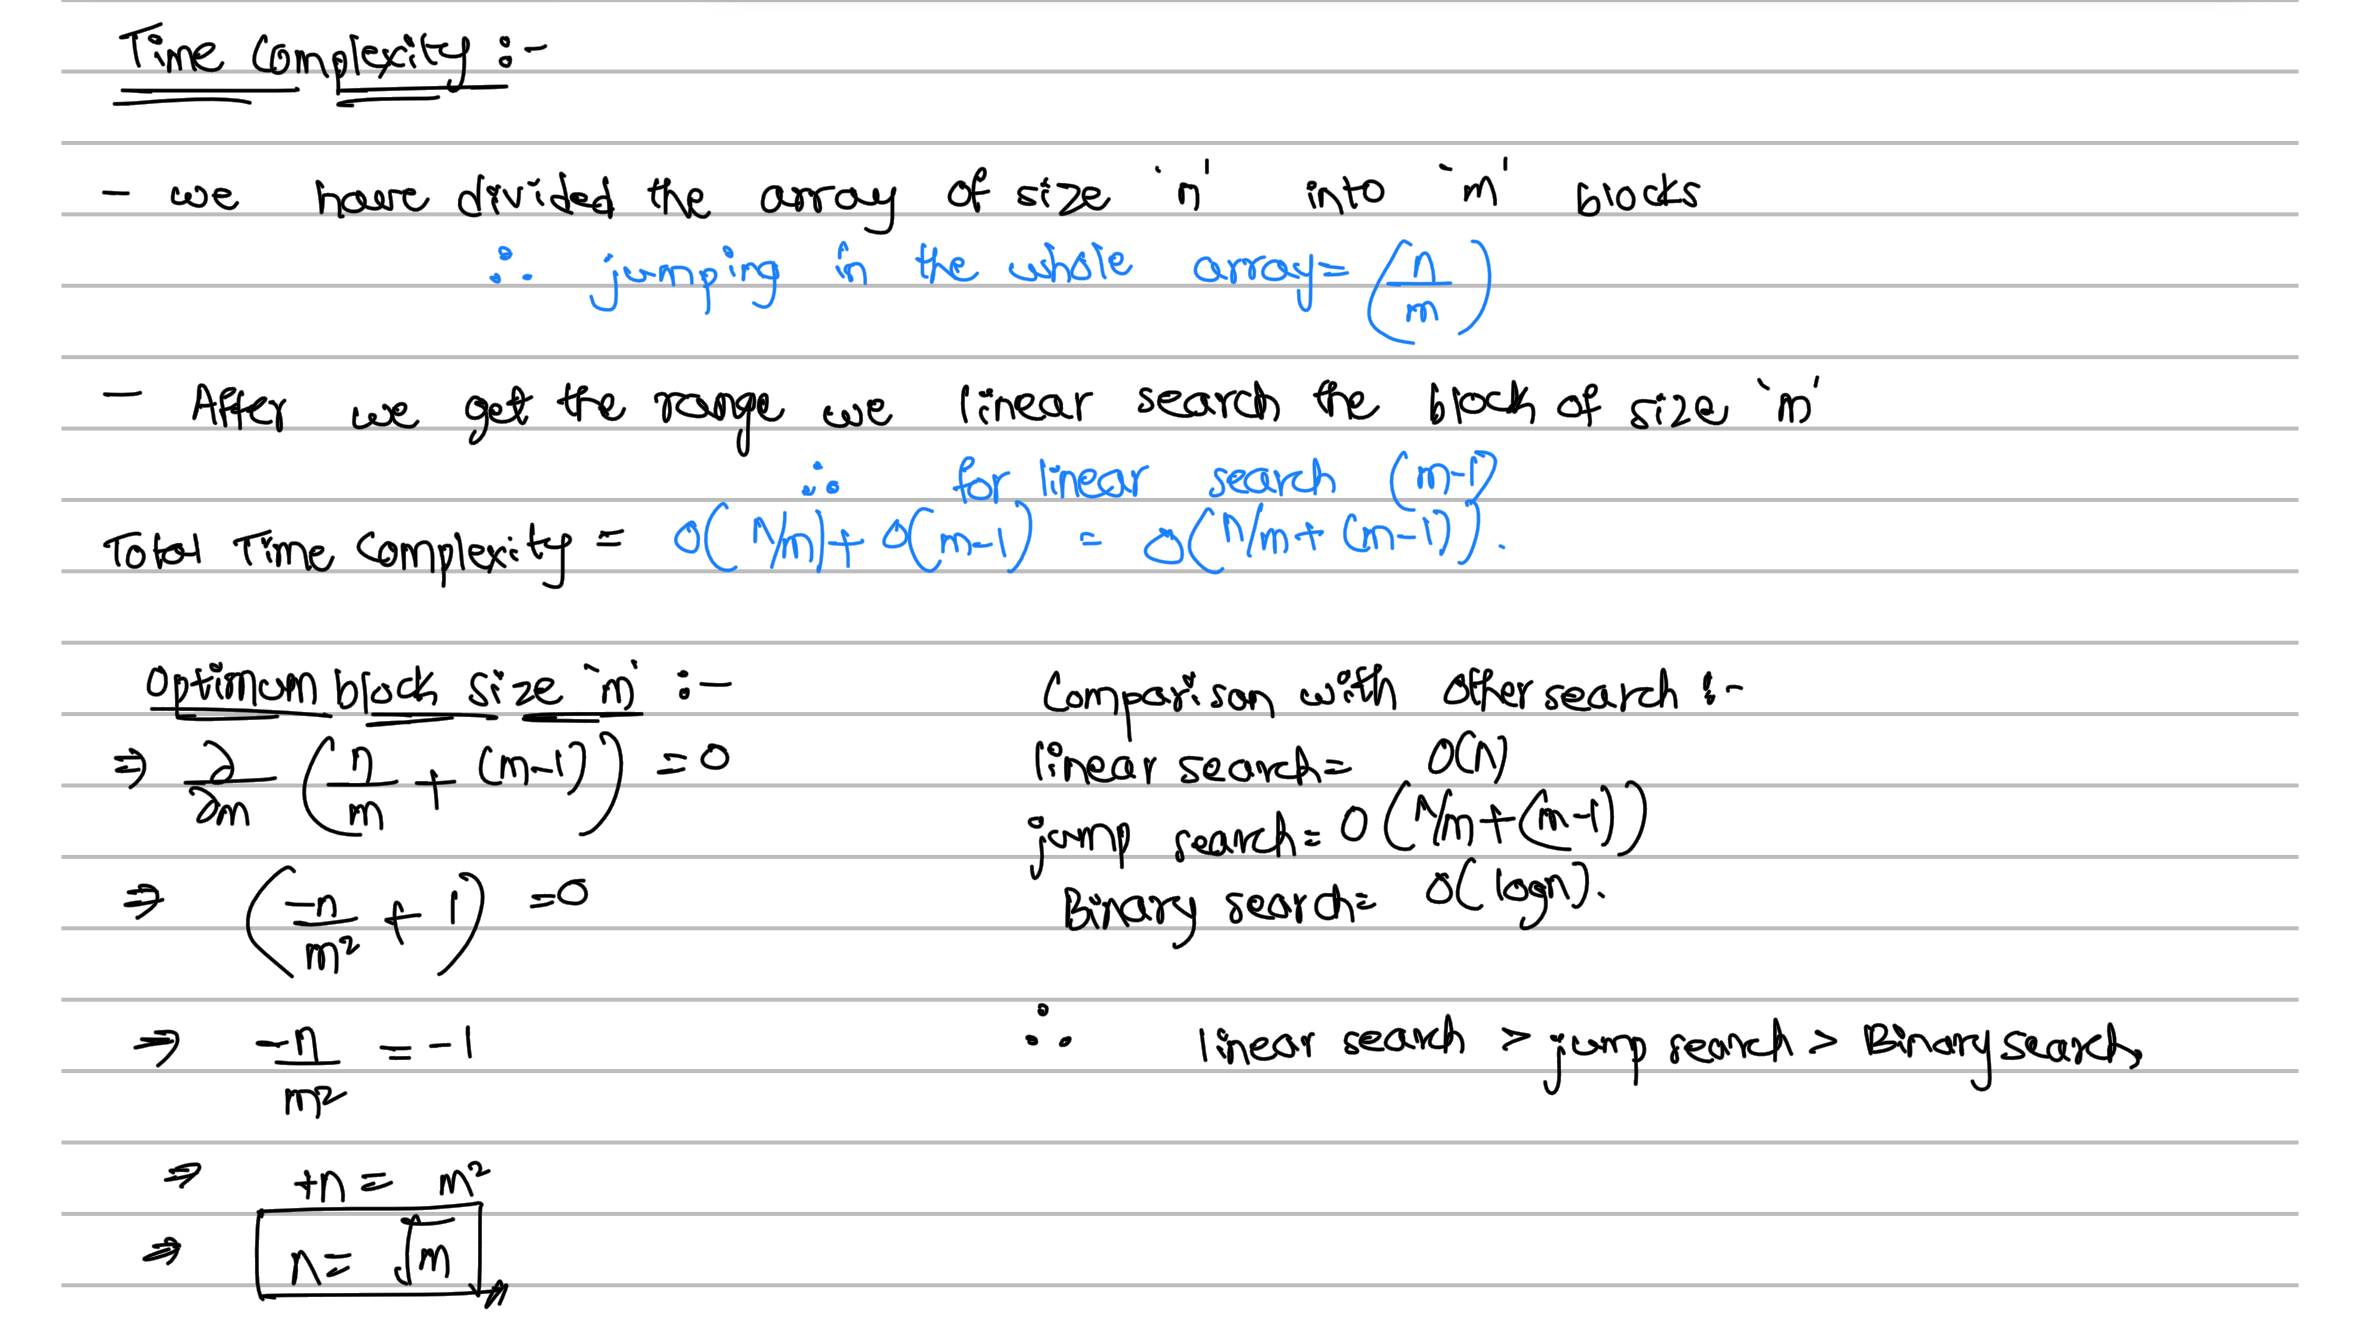 Time Complexity :-
- we have divided the array of size `n' into `m' blocks
∴ jumping in the whole array= (n/m)
- After we get the range we linear search the block of size `m'
∴ for linear search (m-1)
Total Time Complexity = O(n/m)+ O(m-1) = O(n/m+ (m-1)).
Optimum block size `m' :-
⇒ ∂/∂m (n/m + (m-1)) =0
⇒ (-n/m² + 1) =0
⇒ -n/m² = -1
⇒ +n= m²
⇒ n= √m
Comparison with other search :-
linear search= O(n)
jump search= O(n/m+(m-1))
Binary search= O(logn).
∴ linear search > jump search > Binary search,